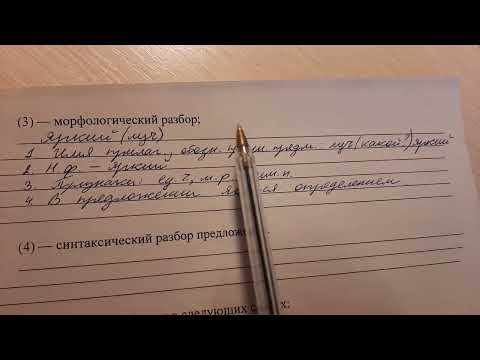 (3) — морфологический разбор;
Яркий (луч)
1 Имя прилаг., обозн. призн. предм. луч (какой?) яркий
2. Н.ф. – яркий
3. Признаки: ед.ч, м.р им.п.
4. В предложении является определением
(4) — синтаксический разбор
следующих